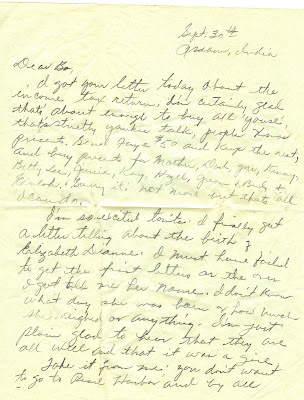 Sept. 30th
Assam, India
Dear Bo,
I got your letter today about the
income tax return. I'm certainly glad
that's about enough to buy all yourse,
that's strictly yankee talk, people Xmas
present. Give Faye $50 and keep the rest,
and buy presents for Martha, Dad, you, Kenny,
Betty Lee, Jennie, Kay, Hazel, &
Sorry it's not more but that's all
I can do.
I'm so excited tonite. I finally got
a letter telling about the birth of
Elizabeth Dianne. I must have failed
to get the first letters as the ones
I got told me her name. I don't know
what day she was born or how much
she weighed or anything. I'm just
plain glad to hear that they are
all well and that it was a girl.
Take it from me; you don't want
to go to Pearl Harbor and by all